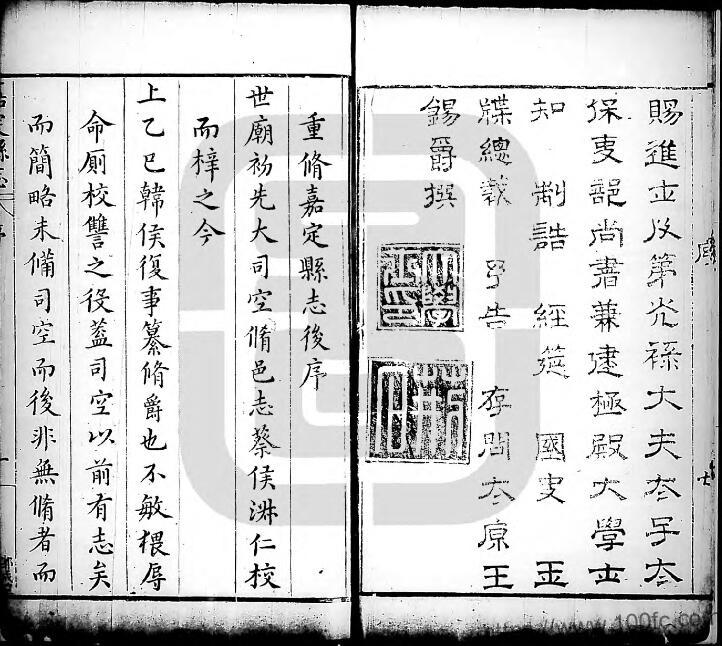 賜進士及第光祿大夫太子太
保吏部尚書兼建極殿大學士
知 制誥 經筵 國史 玉
牒總裁 予告 存問太原王
錫爵撰
序
重脩嘉定縣志後序
世廟初先大司空脩邑志蔡侯仁校
而梓之今
上乙巳韓侯復事纂脩爵也不敏猥辱
命厠校讐之役葢司空以前有志矣
而簡略未備司空而後非無脩者而
嘉定縣志 序